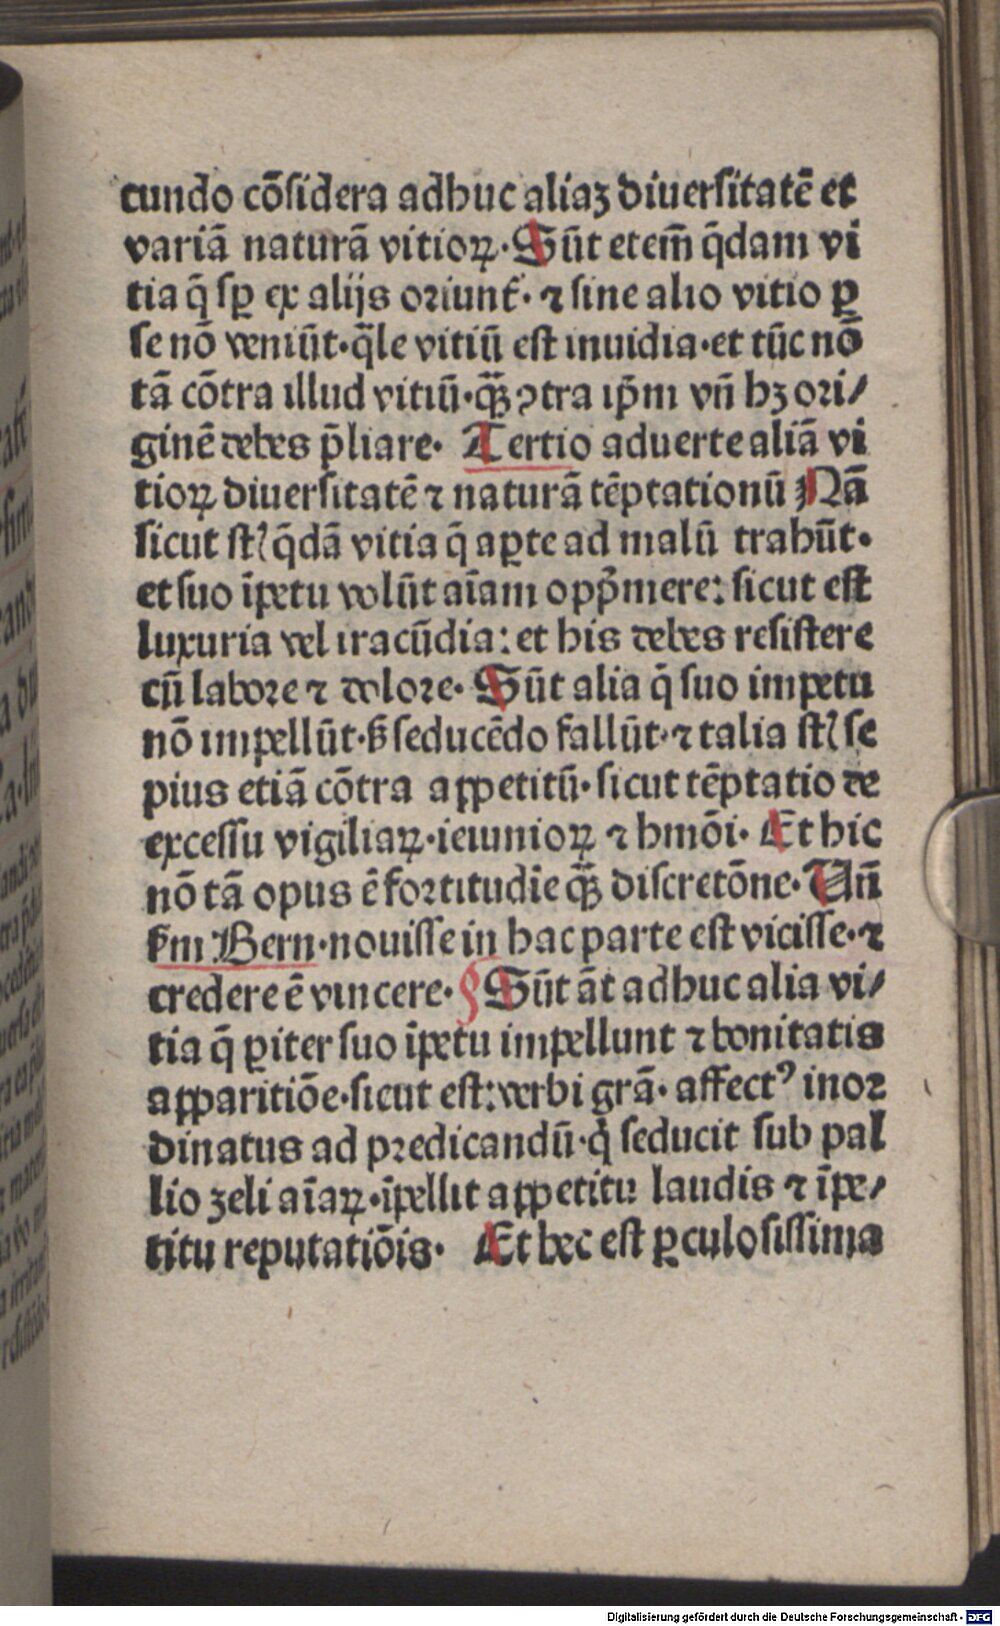 cundo cõsidera adhuc aliaꝫ diuersitatē et
variā naturā vitioꝝ· Sūt etem̄ q̄dam vi
tia q̄ sꝑ ex alijs oriunt᷑· ⁊ sine alio vitio ꝑ
se nō veniūt· q̄le vitiū est inuidia· et tūc nō
tā cōtra illud vitiū· qꝫ̄ ꝯtra ip̄m vn̄ hꝫ ori/
ginē debes p̄liare· Tertio aduerte aliā vi
tioꝝ diuersitatē ⁊ naturā tēptationū Nā
sicut st̄ q̄dā vitia q̄ aꝑte ad malū trahūt·
et suo īpetu volūt aīam opp̄mere: sicut est
luxuria vel iracūdia: et his debes resistere
cū labore ⁊ dolore· Sūt alia q̄ suo impetu
nō impellūt· ß seducēdo fallūt· ⁊ talia st̄ se
pius etiā cōtra appetitū· sicut tēptatio de
excessu vigiliaꝝ· ieiunioꝝ ⁊ hmōi· Et hic
nō tā opus ē fortitudīe qꝫ̄ discretōne· Un̄
ẜm Bern· nouisse in hac parte est vicisse· ⁊
credere ē vincere· § Sūt āt adhuc alia vi/
tia q̄ ꝑiter suo īpetu impellunt ⁊ bonitatis
apparitiōe· sicut est: verbi grā· affectꝰ inor
dinatus ad predicandū· q̇ seducit sub pal
lio zeli aīaꝝ· īpellit appetitu laudis ⁊ īpe/
titu reputatiōis· Et hec est ꝑculosissima
Digitalisierung gefördert durch die Deutsche Forschungsgemeinschaft - DFG